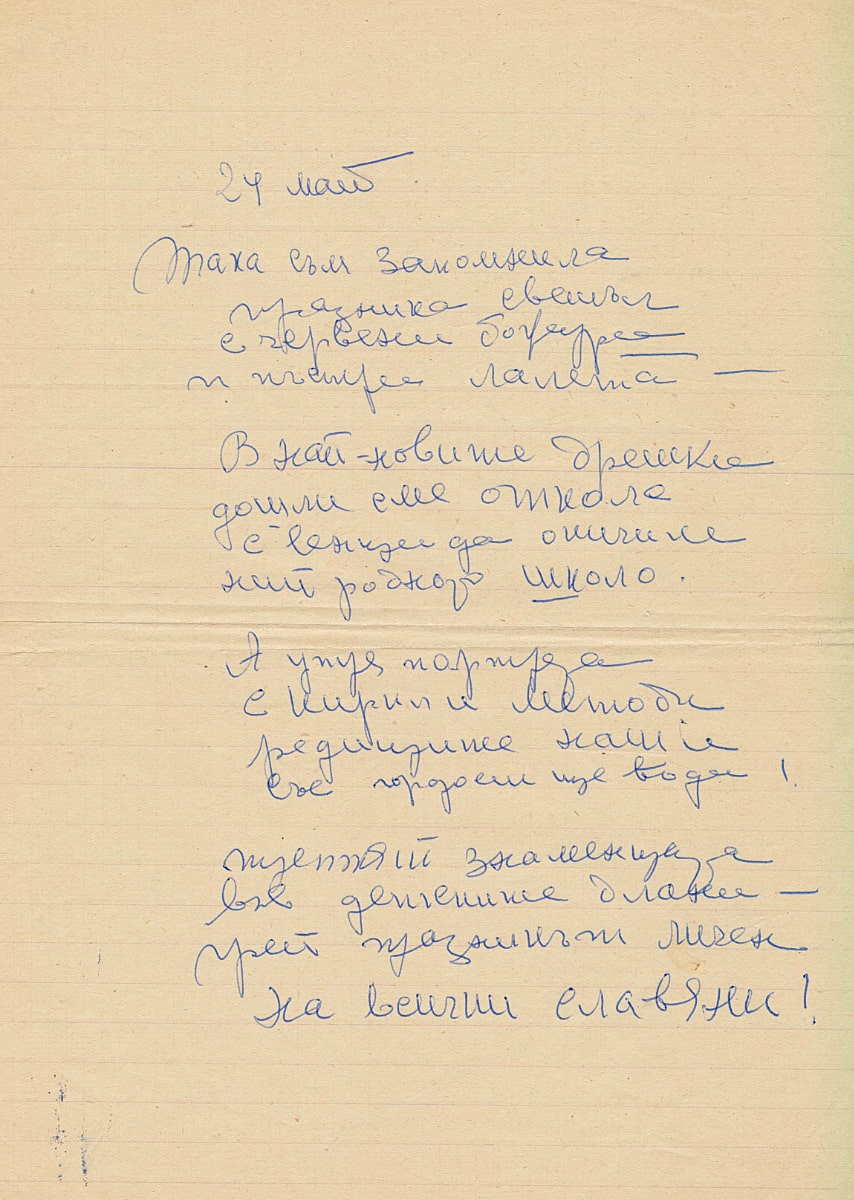 24 май
Така съм запомнила
празника светъл
с червени божури
и пъстри лалета —
В най-новите дрешки
дошли сме отколе
с венци да окичим
ний родното школо.
А утре портрета
с Кирил и Методи
редиците наши
със гордост ще води!
трептят знаменцата
във детските длани —
грей празникът личен
на всички славяни!